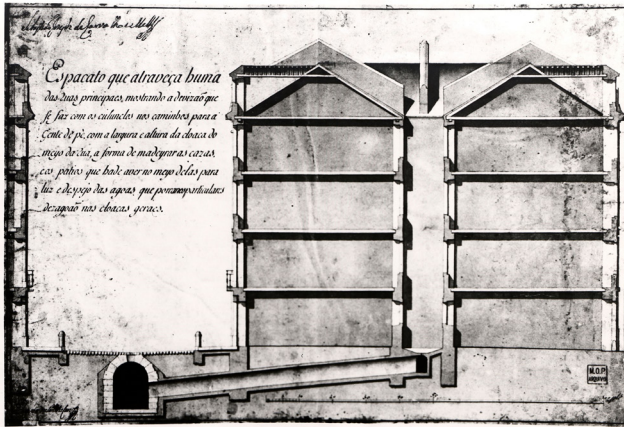 Espacato que atraveça huma
das duas principaes, mostrando a devizaõ que
se faz com os culunelos nos caminhos para a
Gente de pè, com a largura e altura da cloaca do
meyo da rua, a forma de madeyrar as cazas,
e os pátios que hade aver no meyo delas para
luz e despejo das agoas que por canos particulares
dezagoaõ nas cloacas geraes.
M.O.P
ARQUIVO